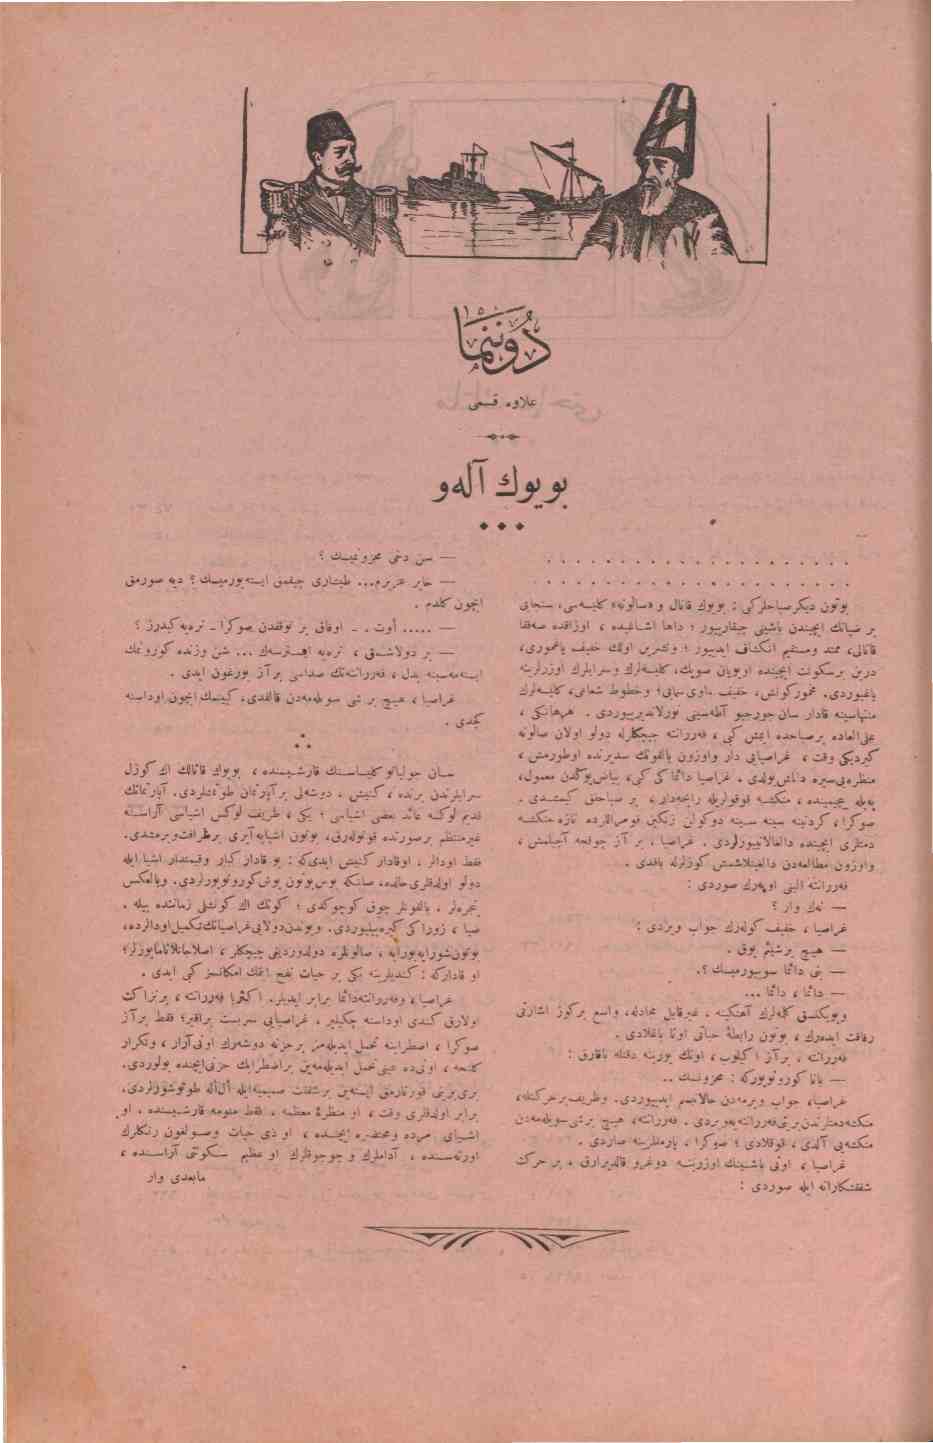 دوننما
علاوه قسمی
بویوك آلەو
بوتون دیكر صباحلر كی : بویوك قانال و «سالوته» كلیسه‌سی، سنجابی
بر ضیانك ایچیندن باشینی چیقاریییور ؛ داها اشاغیده ، اوزاقده صه‌فقا
قانالی، ممتد ومستقیم انكشاف ایدییور ؛ وتشرین اولك خفیف یاغموری،
درین بر سكونت ایچینده اویویان صویك، كلیسه‌لرك وسرایلرك اوزرلرینه
یاغیوردی. مخمور كونش، خفیف ماوی سمایی؛ وخطوط شعاعی، كلیسه‌لرك
منتهاسینه قادار سان جورجیو آطه‌سینی نورلاندیرییوردی . هرهانكی ،
علی العاده بر صباحده ایمش كی ، فەررانته چیچكلرله دولو اولان سالونه
كیردیكی وقت ، غراصیایی دار واوزون بالقونك سدیرنده اوطورمش ،
منظره‌یی سیره دالمش بولدی . غراصیا دائما كی كی، بیاض یوكلدن معمول،
صوكرا ، كردنینه سینه سینه دوكولن زنكین قومرالارده تازه منكشه
دمتلری ایچنده دالغالانییورلردی . غراصیا ، بر آز چوقجه آچیلمش ،
واوزون مطالعه‌دن دالغینلاشمش كوزلرله باقدی .
فەررانته الینی اوپەرك صوردی :
— نەك وار ؟
غراصیا ، خفیف كولەرك جواب ویردی :
— هیچ بر شیئم یوق .
— بنی دائما سوییورمیسك ؟.
— دائما ، دائما ...
وبویكنسق كلمه‌لرك آهنكینه ، غیرقابل مجادله، واسع بر كوز اشارتی
رفاقت ایدەرك ، بوتون رابطۀ حیاتی اوكا باغلادی .
فەررانته ، بر آز اكیلوب ، اونك یوزینه دقتله باقارق :
— بانا كورونویوركه : محزونسك ..
غراصیا، جواب ویرمه‌دن حالا تبسم ایدییوردی. وظریف بر حركتله،
منكشه دمتلرندن برینی فەررانته‌یه ویردی . فەررانته، هیچ بر شی سویله‌مه‌دن
منكشه‌یی آلدی ، قوقلادی ؛ صوكرا ، یاره‌لرینه صاردی .
غراصیا ، اونی باشینك اوزرینه دوغرو قالدیرارق ، بر حركت
شفقتكارانه ایله صوردی :
— سن دخی محزونمیسك ؟
— خایر عزیزم... طیشاری چیقمق ایسته‌یورمیسك ؟ دیه صورمق
ایچون كلدم .
— ..... أوت . ـ اوفاق بر توقفدن صوكرا ـ نره‌یه كیدرز ؟
— بر دولاشمق ، نره‌یه ایسترسه‌ك ... شن وزنده كورونمك
ایسته‌مه‌سینه بدل ، فەررانته‌نك صداسی بر آز یورغون ایدی .
غراصیا ، هیچ بر شی سویله‌مه‌دن قالقدی. كیینمك ایچون اوداسنه
كچدی .
سان جولیانو كلیساسنك قارشیسنده ، بویوك قانالك اك كوزل
سرایلرندن برنده ، كنیش ، دوشه‌لی بر آپارتمان طوتمشلردی. آپارتمانك
قدیم لوكسه عائد بعضی اشیاسی ؛ یكی ، ظریف لوكس اشیاسی آراسنه
غیرمنتظم بر صورتده قونوله‌رق، بوتون اشیایه آیری بر ظرافت ویرمشدی.
فقط اودالر ، اوقادار كنیش ایدی‌كه : بو قادار كبار وقیمتدار اشیا ایله
دولو اولدقلری حالده، صانكه بوس بوتون بوش كورونویورلردی. وبالعكس
پنجره‌لر ، بالقونلر چوق كوچوكدی ؛ كونك اك كونشلی زماننده بیله .
ضیا ، زوراكی كیره‌بیلیوردی. وبوندن دولایی غراصیانك تكمیل اودالرده،
بوتون شورایه بورایه ، صالونلره دولدوردیغی چیچكلر ، اصلا جانلاناماییورلر؛
او قاداركه : كندیلرینه یكی بر حیات نفخ ایتمك امكانسز كی ایدی .
غراصیا ، وفەررانته دائما برابر ایدیلر. اكثریا فەررانته ، بر نزاكت
اولارق كندی اوداسنه چكیلیر . غراصیایی سربست براقیر؛ فقط بر آز
صوكرا ، اضطرابنه تحمل ایدیله‌مز بر حزنه دوشه‌رك اونی آرار ، وتكرار
كلنجه ، اونی ده عینی تحمل ایدیله‌مه‌ین بر اضطرابك حزنی ایچنده بولوردی.
بری برینی قورتارمق ایسته‌ین بر شفقت صمیمیه ایله أل أله طوتوشورلردی.
برابر اولدقلری وقت ، او منظرۀ معظمه ، فقط منومه قارشیسنده ، او
اشیای مرده ومحتضره ایچنده ، او ذی حیات وصولغون رنكلرك
اورته‌سنده ، آداملرك و چوجوقلرك او عظیم سكوتی آراسنده ،
مابعدی وار